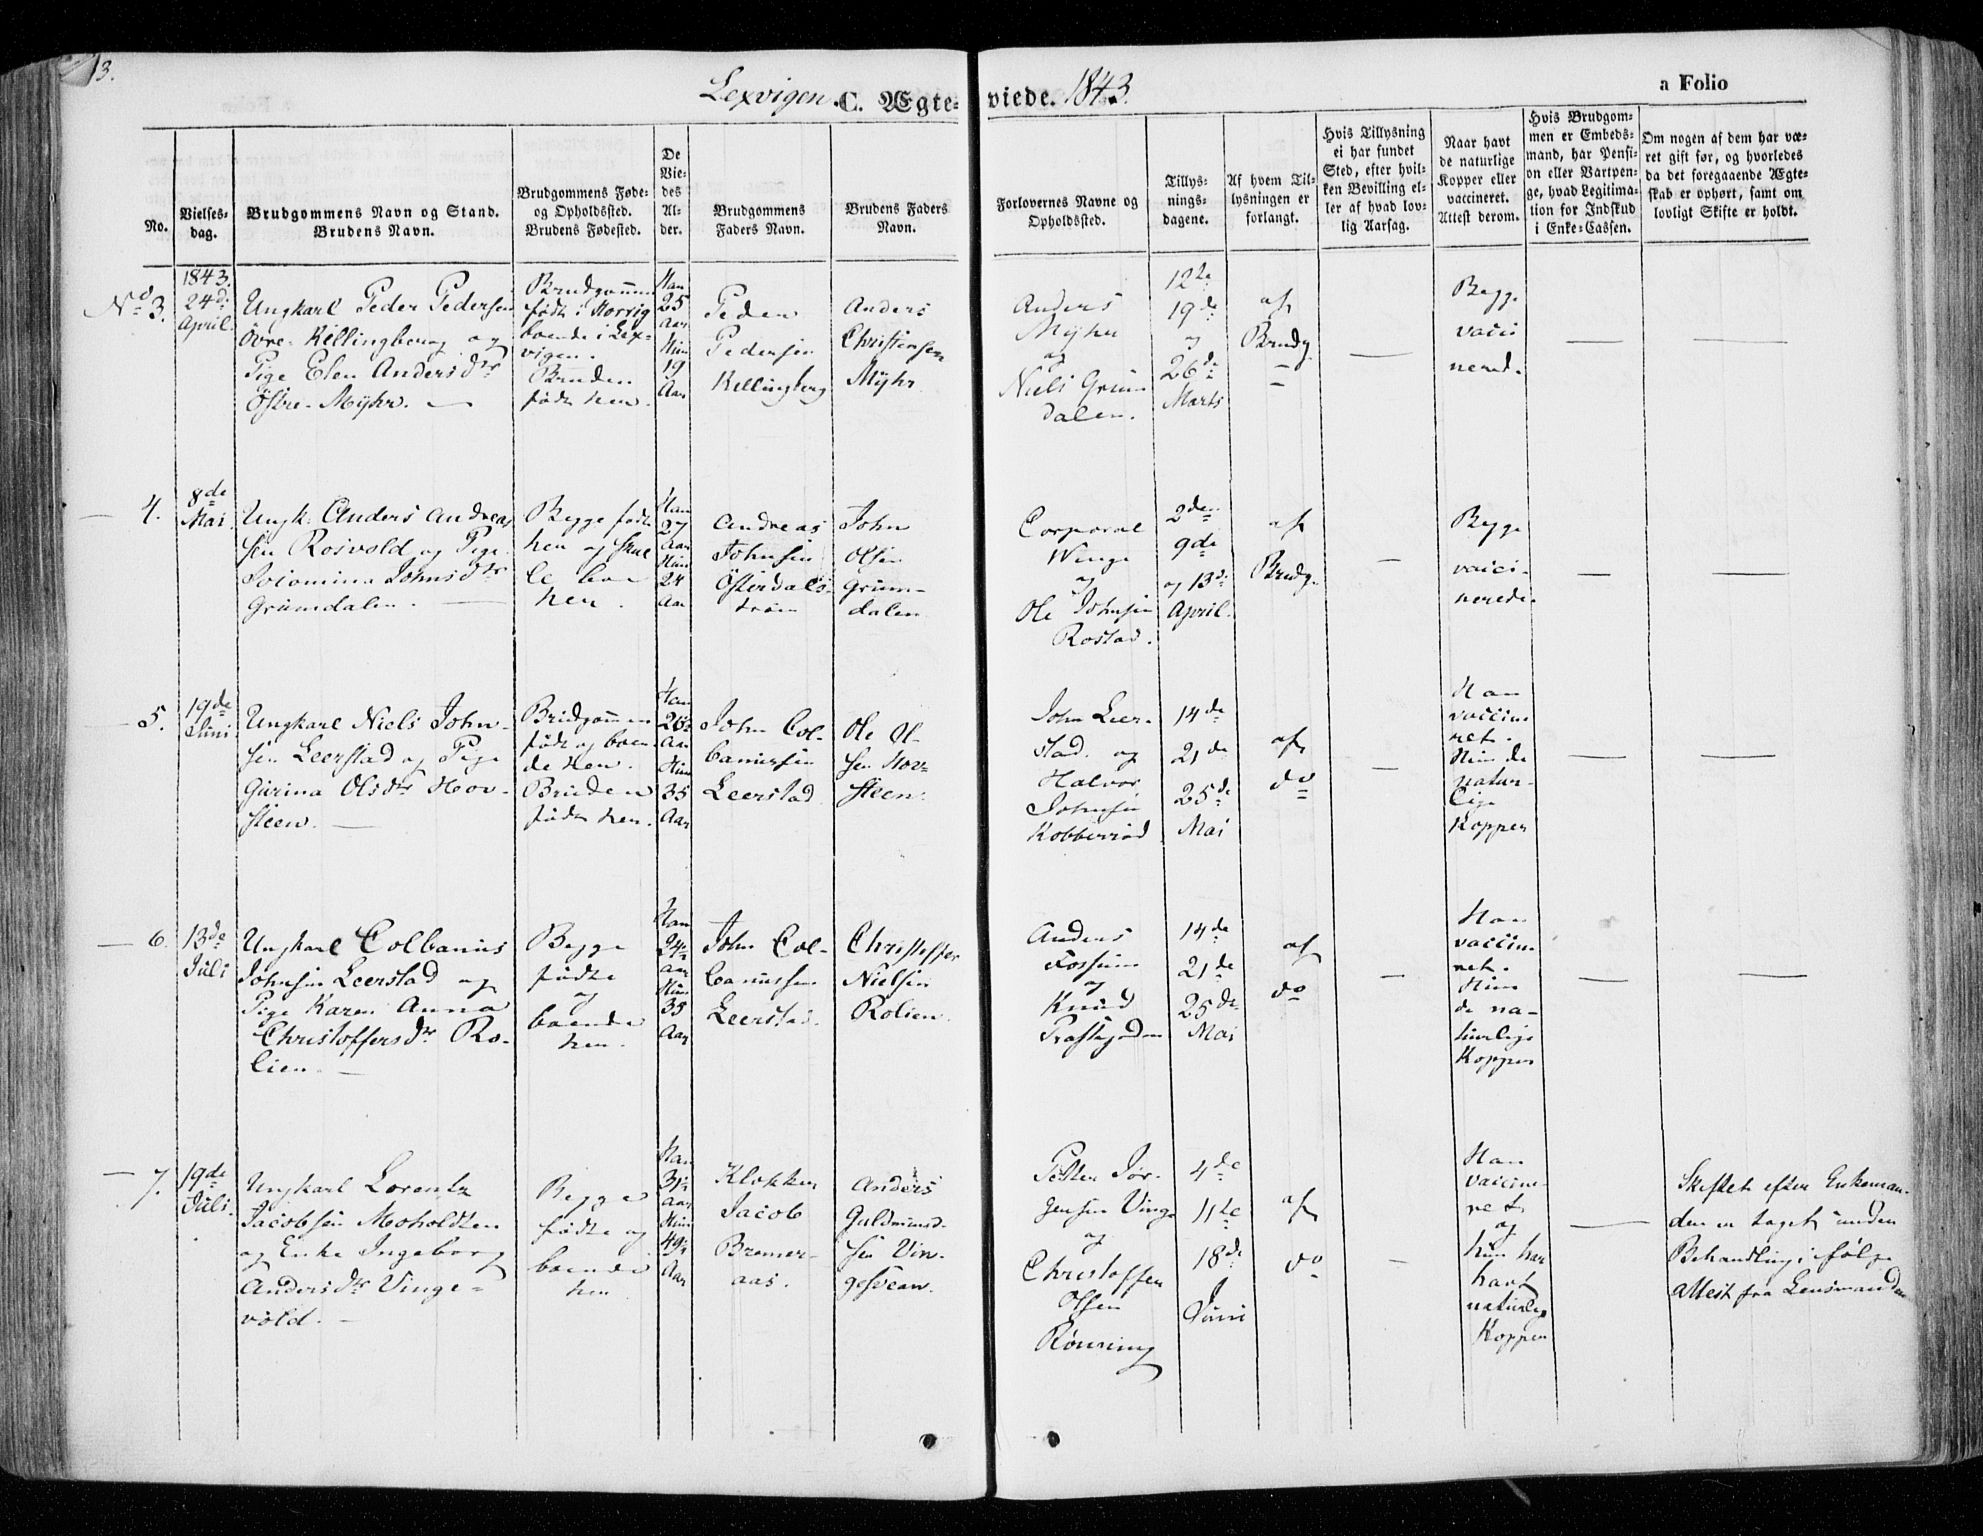 13.
Lexvigen C. Ægteviede. 1843.
a Folio
No.
Vielses-
dag.
Brudgommens Navn og Stand.
Brudens Navn.
Brudgommens Føde-
og Opholdssted.
Brudens Fødested.
De
Vie-
des
Al-
der.
Brudgommens
Faders Navn.
Brudens Faders
Navn.
Forlovernes Navne og
Opholdssted.
Tillys-
nings-
dagene.
Af hvem Til-
lysningen er
forlangt.
Hvis Tillysning
ei har fundet
Sted, efter hvil-
ken Bevilling el-
ler af hvad lov-
lig Aarsag.
Naar havt
de naturlige
Kopper eller
vaccineret.
Attest derom.
Hvis Brudgom-
men er Embeds-
mand, har Pensi-
on eller Vartpen-
ge, hvad Legitima-
tion for Indskud
i Enke-Cassen.
Om nogen af dem har væ-
ret gift før, og hvorledes
da det foregaaende Ægte-
skab er ophørt, samt om
lovligt Skifte er holdt.
No 3.
1843.
24de
April.
Ungkarl Peder Pedersen
övre Killingberg og
Pige Elen Andersdtr
Östre-Myhr. —
Brudgommen
født i Storrig
boende i Lex-
vigen.
Bruden
født her.
Han
25
Aar
Hun
19
Aar
Peder
Pedersen
Killingberg
Anders
Christensen
Myhr
Anders
Myhr
og
Niels Grün
dalen.
12te
19de
og
26de
Marts
af
Brudg.
—
Begge
vacci
nered.
—
—
4.
8de
Mai
Ungk. Anders Andrea
sen Rosvold og Pige
Johnsdtr
Gründalen. —
Begge født
her og
boe
her.
Han
27
Aar
Hun
24
Aar
Andreas
Johnsen
Österdals-
John
Olsen
Grün-
dalen
Corporal
Winge
og
Ole Johnsen
Rostad.
2den
9de
og 13de
April.
af
Brudg.
—
Begge
vacci-
nerede.
—
—
5.
19de
Juni
Ungkarl Niels John-
sen Leerstad og Pige
Gurina Olsdtr Hov-
steen. —
Brudgommen
født og boen
de her.
Bruden
født her.
Han
Aar
Hun
35
Aar
John Col-
banussen
Leerstad
Ole Ol-
sen Hov-
steen.
John Leer-
stad. og
Halvor
Johnsen
14de
21de
25de
Mai
af
do
—
Han
vaccine
ret.
Hun de
natur-
lige
Kopper
—
—
6.
13de
Juli
Ungkarl Colbanus
Johnsen Leerstad og
Pige Karen Anna
Christoffersdtr Ro-
lien. —
Begge
fødte
og
boende
her.
Han
24
aar
Hun
35
Aar
John Col-
banussen
Leerstad.
Christoffer
Nielsen
Rolien.
Anders
Fossum
og
Knud
14de
21de
25de
Mai
af
do
—
Han
vaccine
ret.
Hun
de na-
turlige
Kopper
—
—
7.
19de
Juli.
Ungkarl Lorentz
Jacobsen Moholdten
og Enke Ingeborg
Andersdtr Vinge-
vold. —
Begge
fødte og
boende
her
Han
31
aar
Hun
49
Aar
Klokker
Jacob
Bremer-
aas.
Anders
Guldmunds-
sen Vin-
gesvean.
Petter Jør-
gensen Vinge
og
Christoffer
Olsen
Rönning
4de
11te
18de
Juni
af
do
—
Han
vaccine
ret
og
hun har
havt
naturlig
Kopper
—
Skiftet efter Enkeman-
den er taget under
Behandling i følge
attest fra Lensmanden